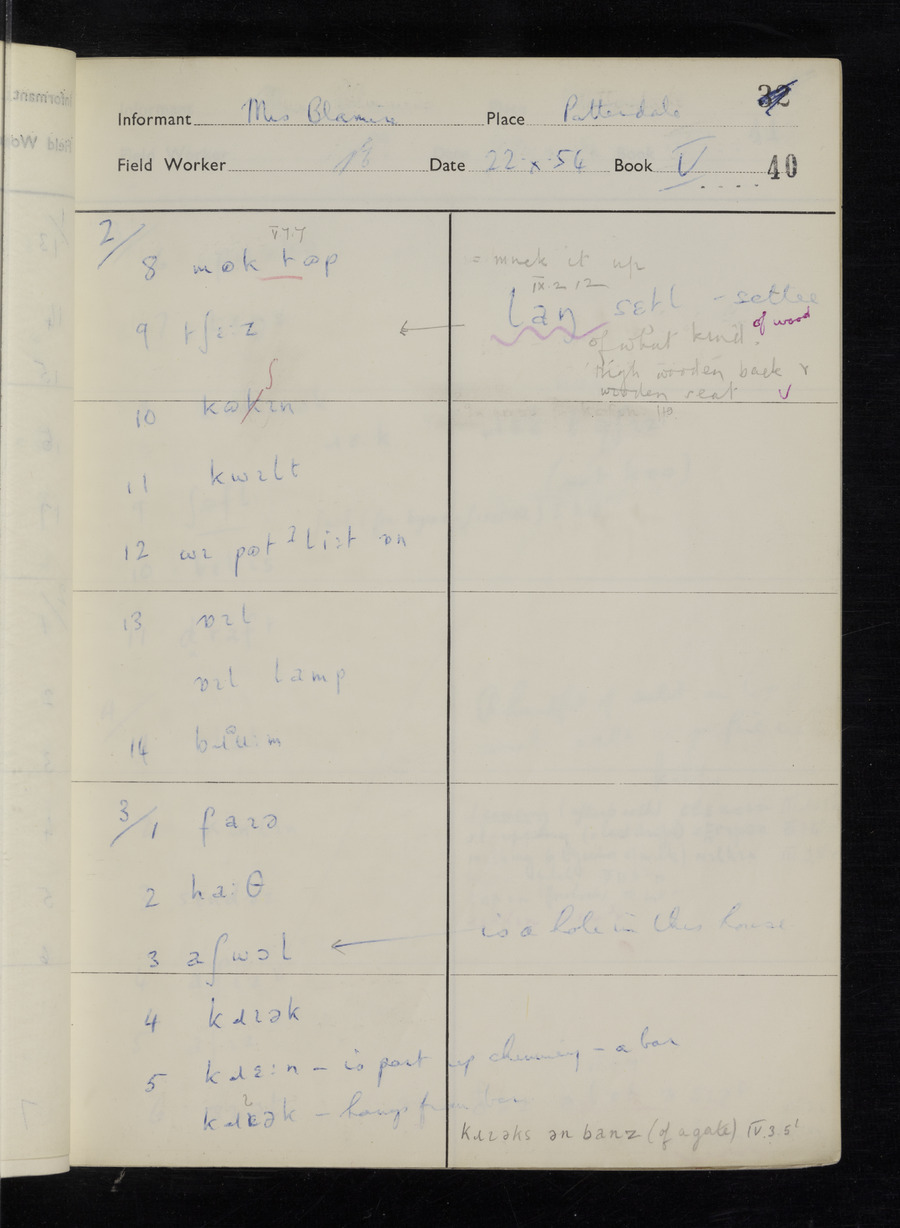 32
Informant Mrs Blamire Place Patterdale
Field Worker Date 22·x·54 Book V 40
2/
8 mək təp = muck it up
IX.2 12
9 tʃɛ:z laŋ setl - settee
of wood
of what kind.
High wooden back &
wooden seat
10
11 kwɪlt
12 wɪ pət ʔ lɪət ɒn
13 ɒɪl
ɒɪl lamp
14
3/1 faɪə
2 ha:θ
3 aʃwəl is a hole in this house
4 kɹɪək
5 kɹɛ:n - is part up chimney - a bar
kɹɪək - hangs from bar
kɹɪəks ən banz (of a gate) IV.3.5